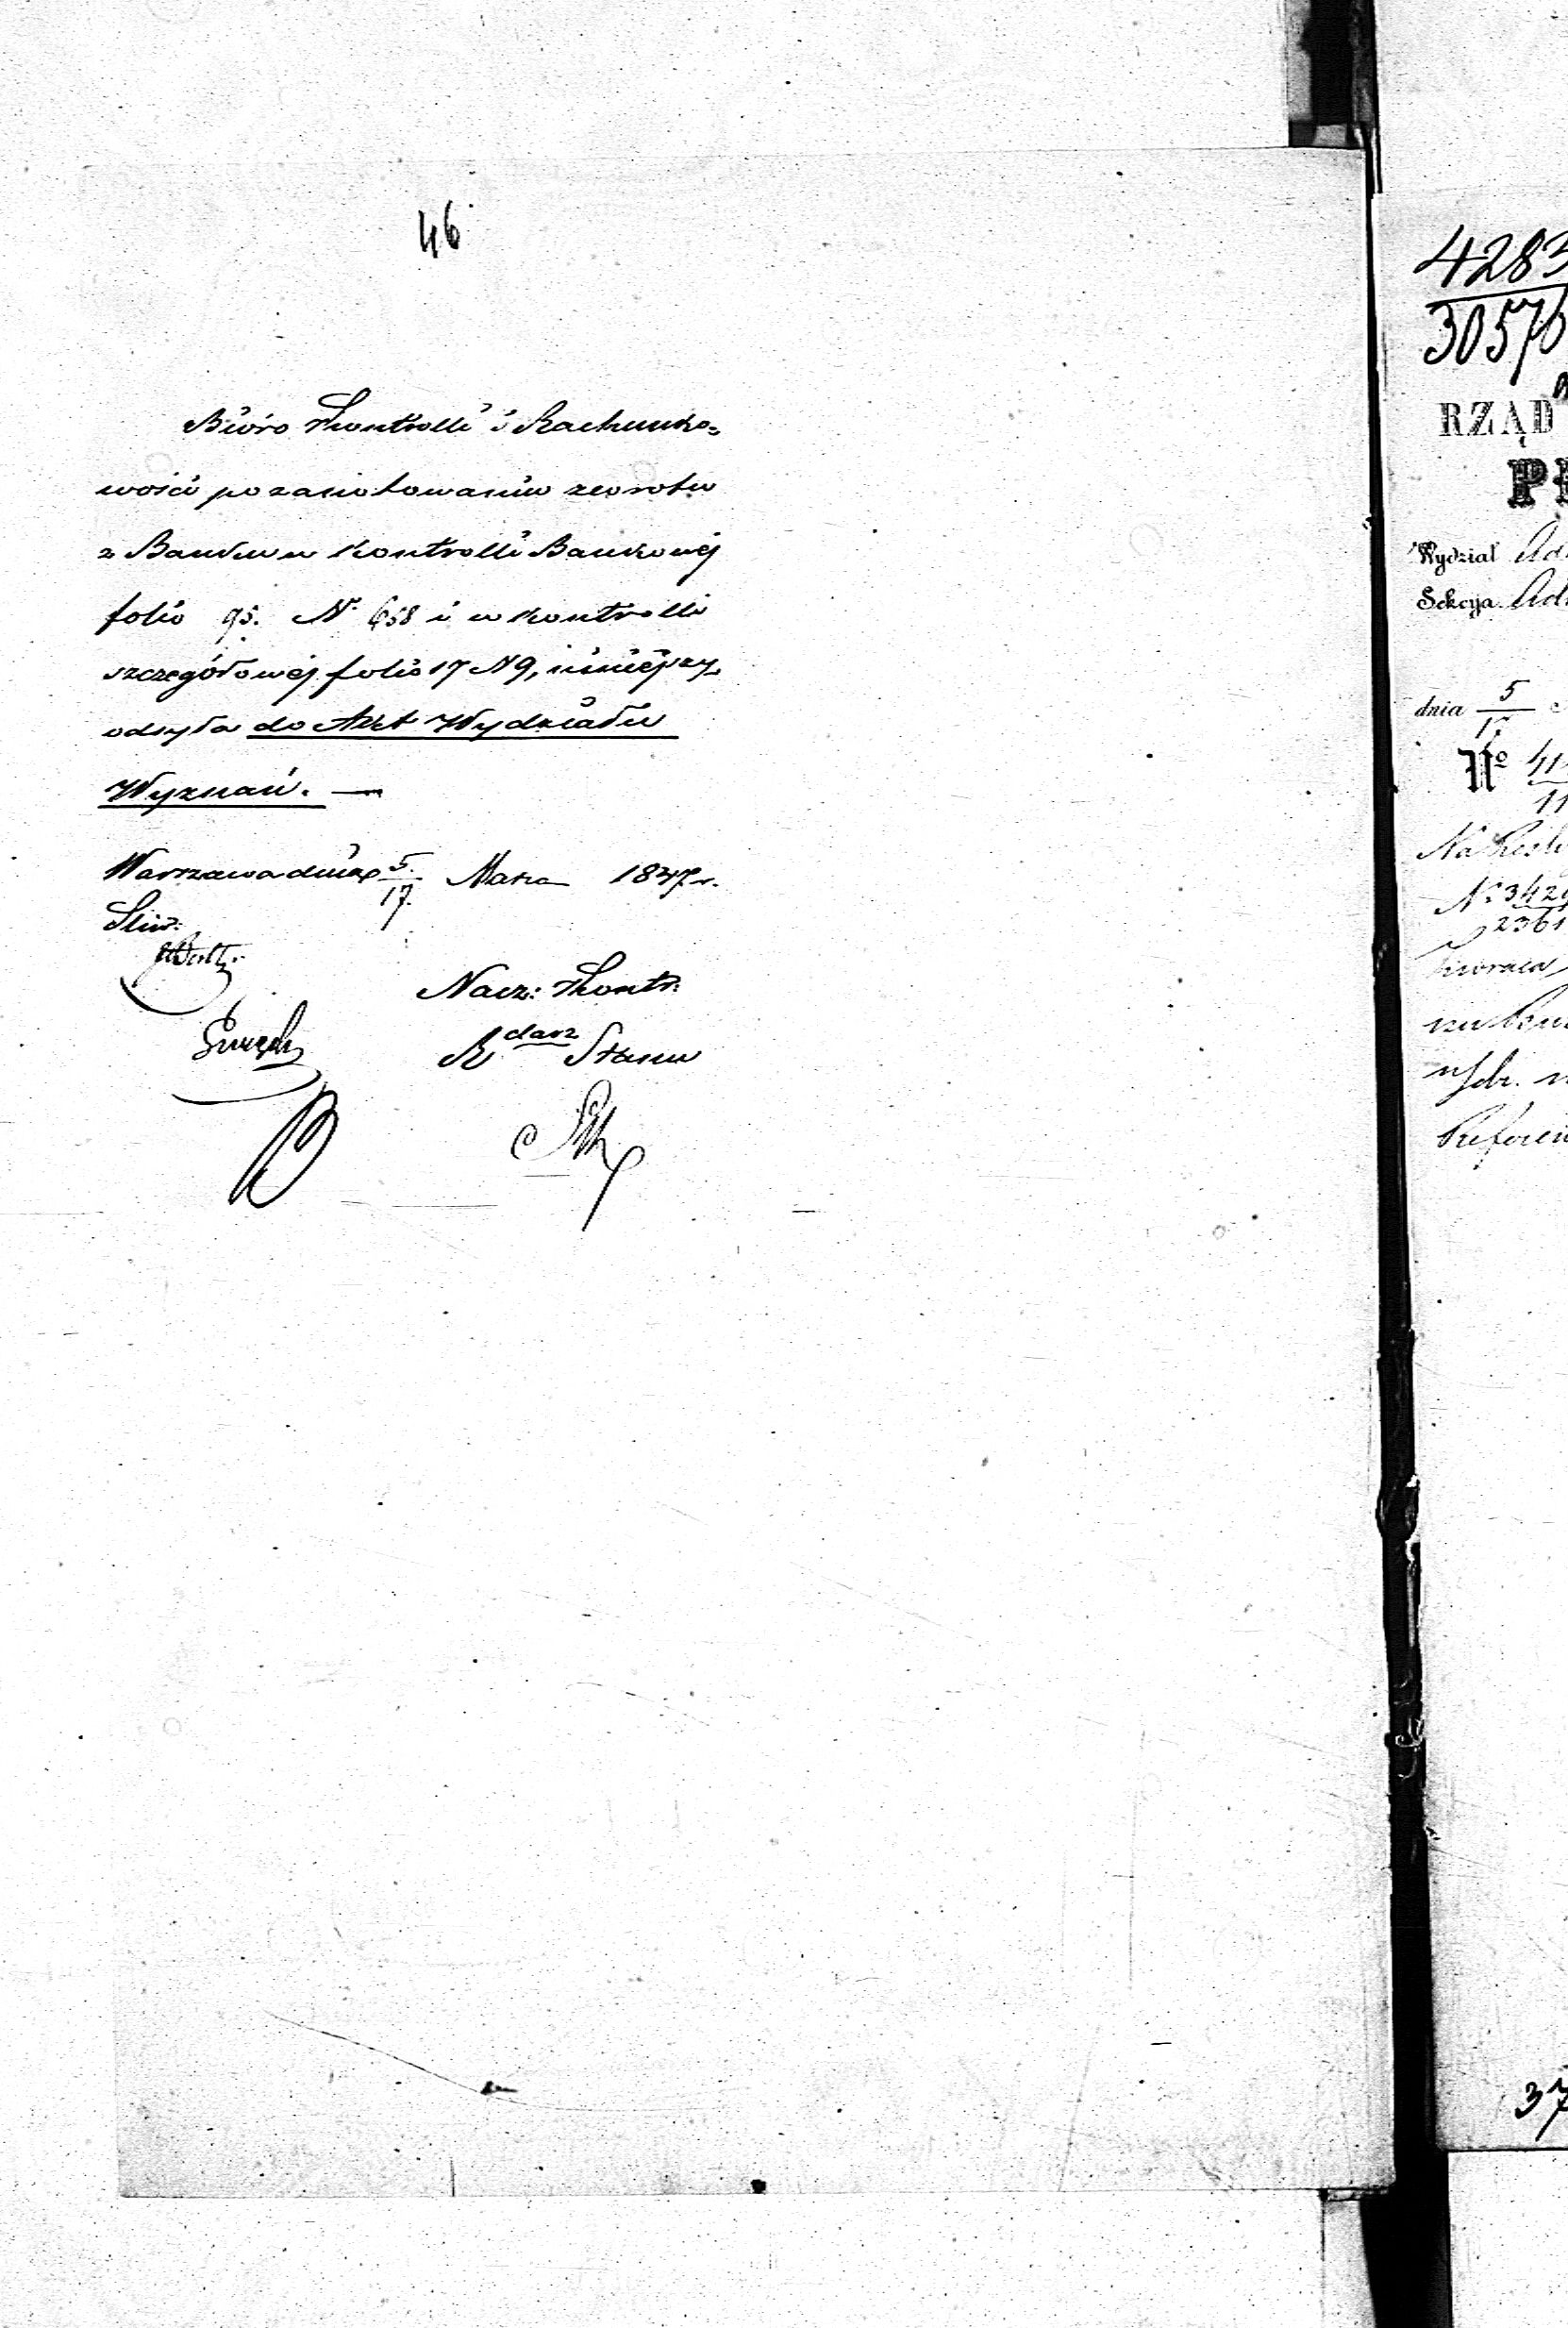 46
Bióro Kontrolli i Rachunko=
wości po zanotowaniu zwrotu
z Banku w Kontrolli Bankowéj
folio 95. N. 658 i w Kontrolli
szczegółowéj folio 17 N 9, niniéjszy
odsyła do Akt Wydziału
Wyznań. —
Warszawa dnia 5/17 Marca 1847 r.
Nacz: Kontr:
R darz Stanu
4283
30576
RZĄD
Wydział
Sekcya
dnia 5/17
No 41
11
Na
N: 3429
2361
37